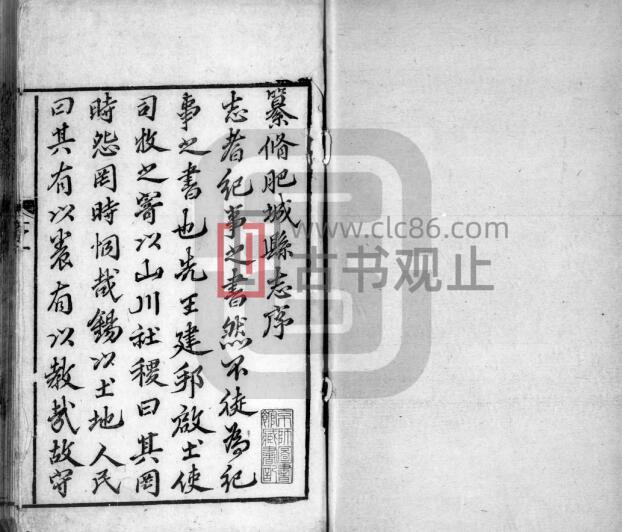 纂脩肥城縣志序
志者紀事之書然不徒為紀
事之書也先王建邦啟土使
司牧之寄以山川社稷曰其罔
時怨罔時恫哉錫以土地人民
曰其有以養有以教哉故守
京師圖書
館藏書記
www.clc86.com
古书观止